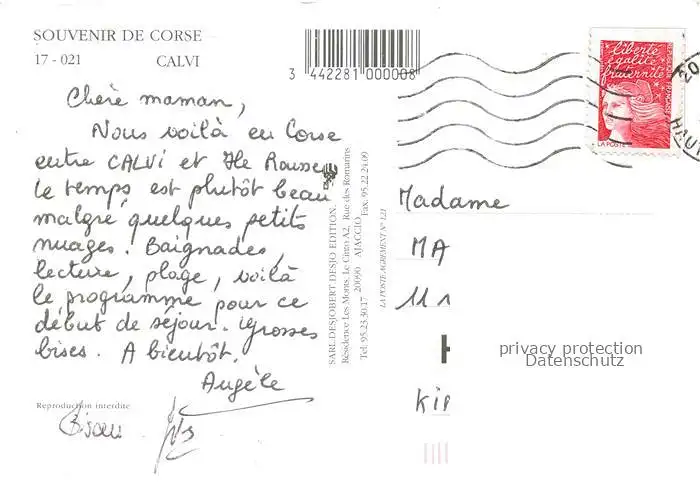 SOUVENIR DE CORSE
17 - 021 CALVI
3 442281 000008
Chère maman,
Nous voilà en Corse
entre CALVI et Ile Rousse
le temps est plutôt beau
malgré quelques petits
nuages. Baignades,
lecture, plage, voilà
le programme pour ce
début de séjour. Grosses
bises. A bientôt.
Angèle
Reproduction interdite
Bisou
SARL DESJOBERT DESJO EDITION.
Résidence Les Monts. Le Cinto A2, Rue des Romarins
Tel: 95.23.30.17 20090 AJACCIO Fax: 95.22.24.09
LA POSTE AGREMENT N° 121
liberté
égalité
fraternité
REPUBLIQUE FRANÇAISE
LA POSTE
HAUT
Madame
MA
privacy protection
Datenschutz